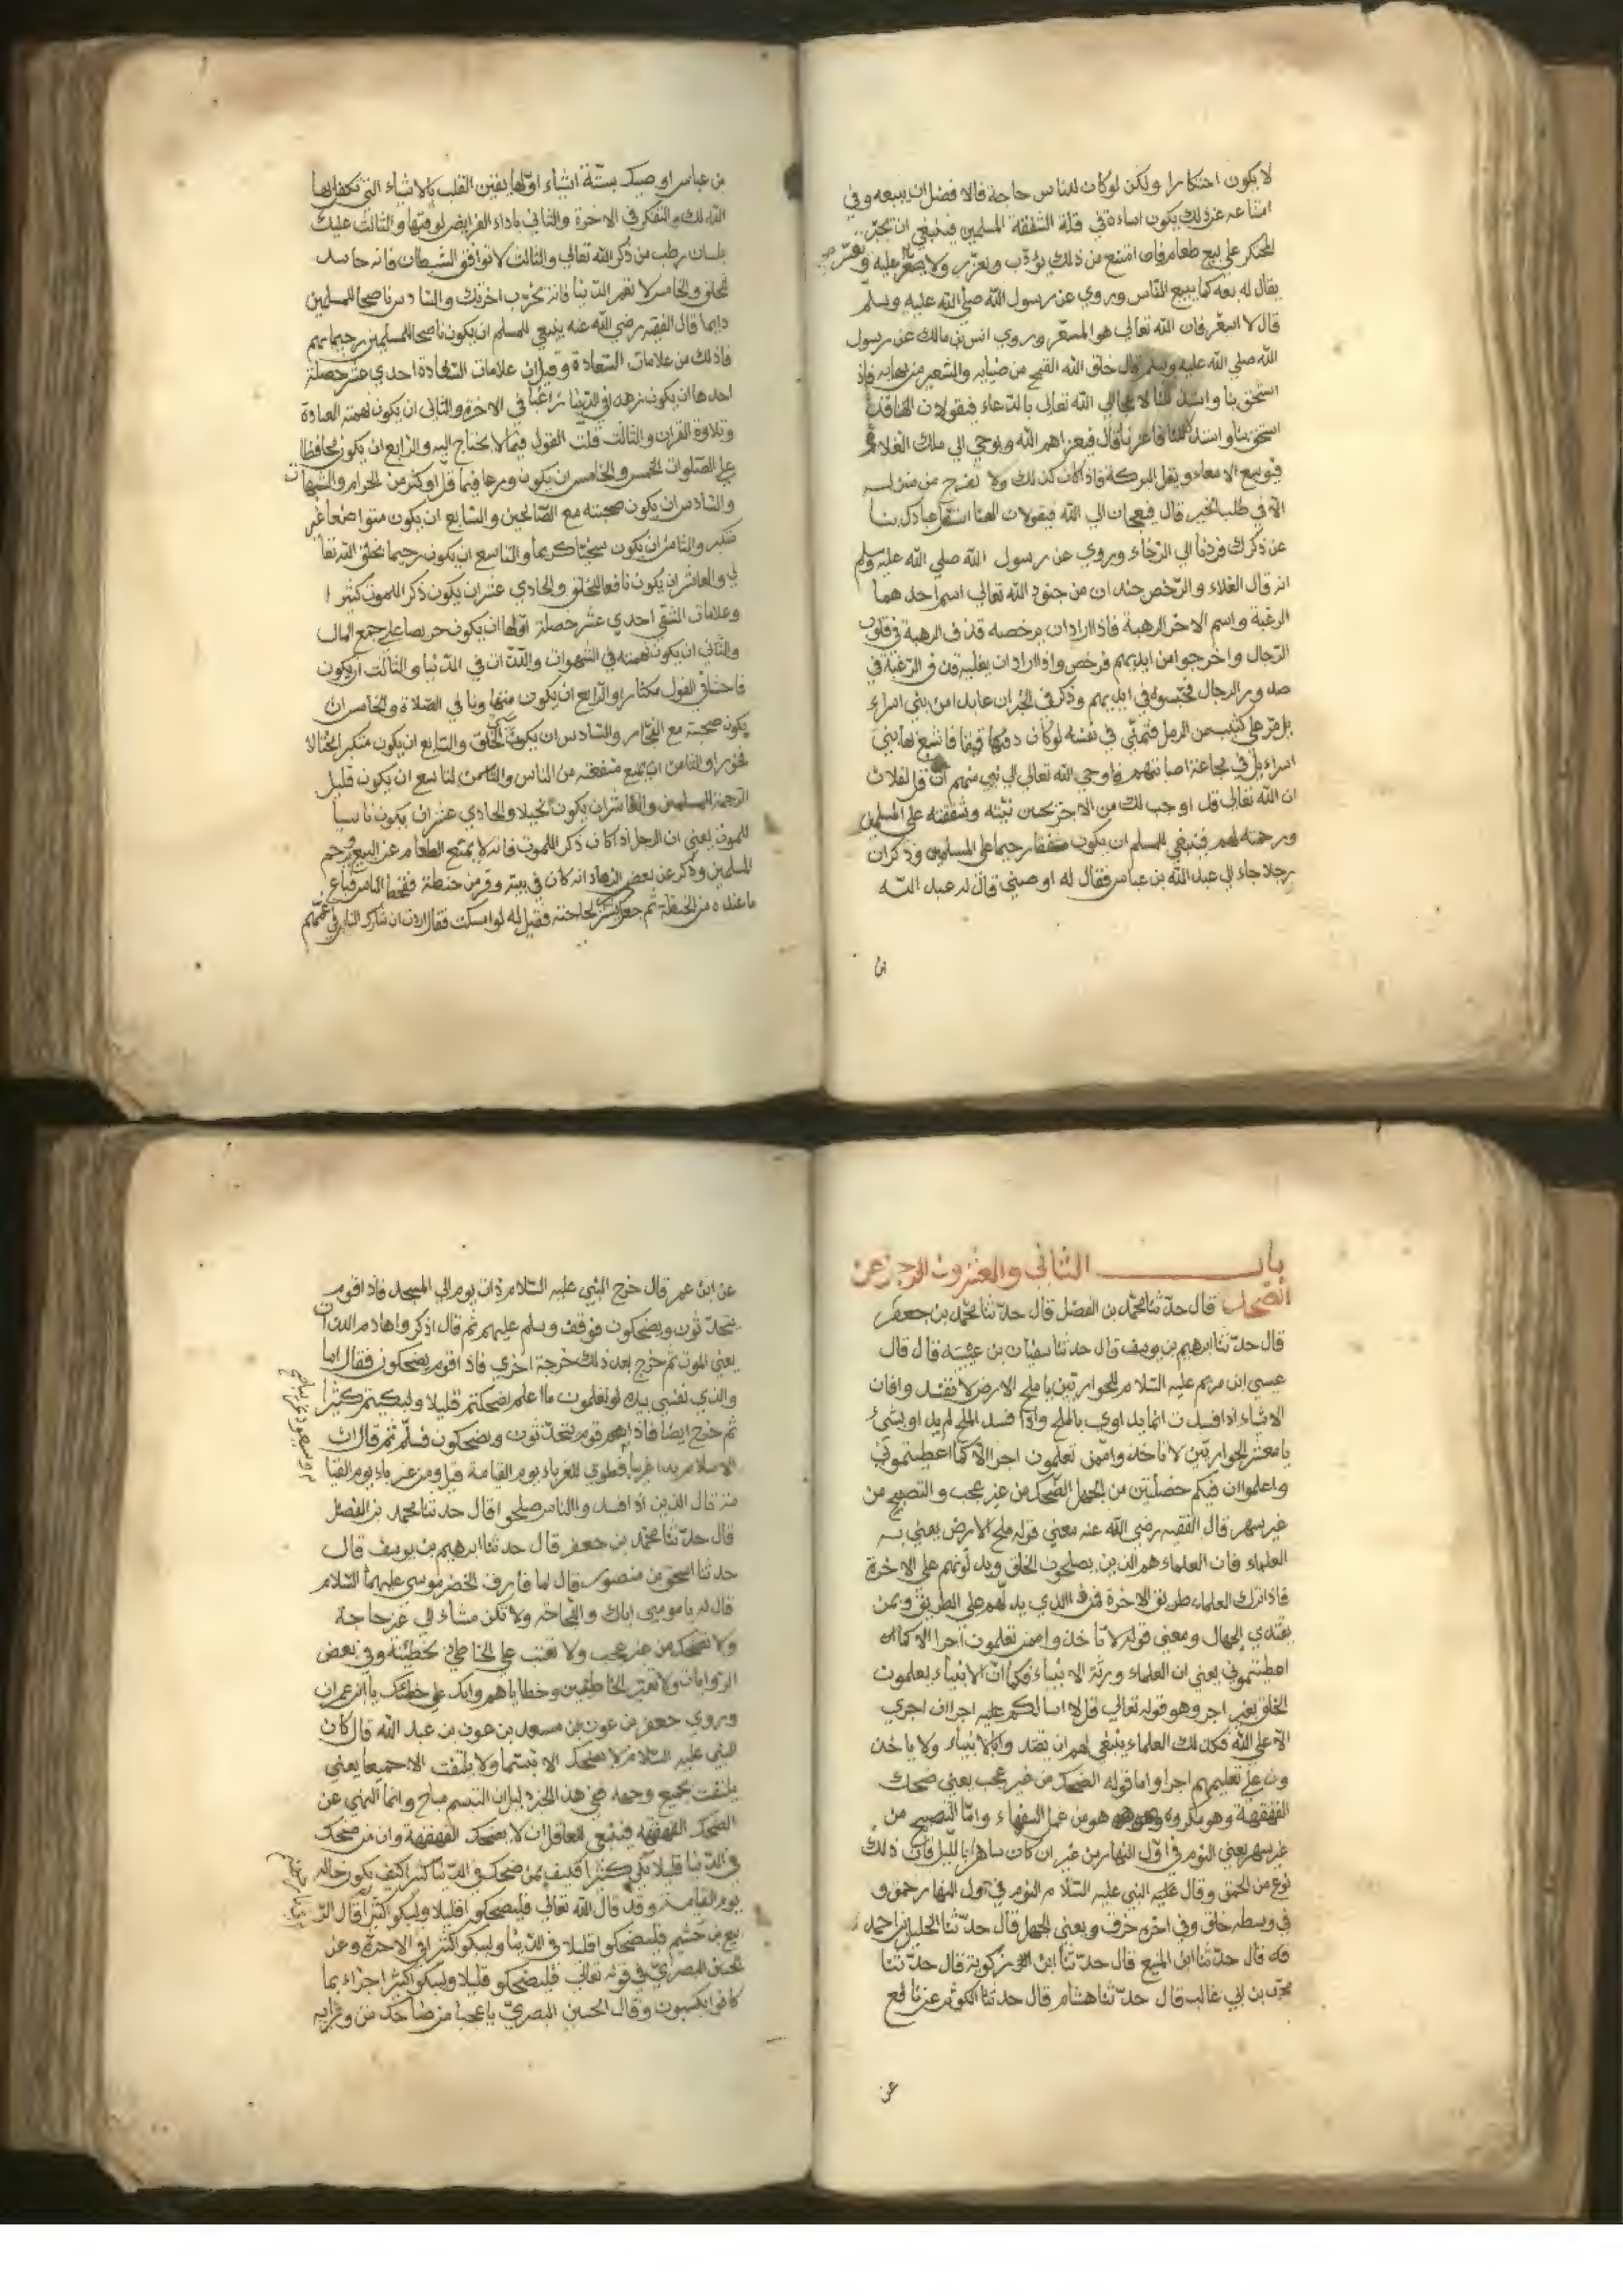 لا يكون احتكارا ولكن لوكان للناس حاجة فالافضل ان يبيعه وفي
امتناعه عن ذلك يكون اساءة في قلة الشفقة المسلمين فينبغي ان يجبر
المحتكر على بيع طعامه فان امتنع من ذلك يؤدب ويعزر ولا يسعر عليه
يقال له بعه كما يبيع الناس وروي عن رسول الله صلي الله عليه وسلم
قال لا اسعر فان الله تعالي هو المسعر وروي انس بن مالك عن رسول
الله صلي الله عليه وسلم قال خلق الله
الله تعالي بالدعاء فيقولان
قال فيعزاهم الله ويوحي الي ملك الغلاء
الامعاء ويقل البركة فاذا كان كذلك ولا تخرج من منزله
الا في طلب الخير قال فيعجان الي الله فيقولان الهنا
عن ذكرك فردنا الي الرخاء وروي عن رسول الله صلي الله عليه وسلم
انه قال الغلاء والرخص جندان من جنود الله تعالي اسم احدهما
الرغبة واسم الاخر الرهبة فاذا اراد ان يرخصه قذف الرهبة في قلوب
الرجال واخرجوا من ايديهم فرخص واذا اراد ان يغليه قذف الرغبة في
صدور الرجال فحبسوه في ايديهم وذكر في الخبر ان عابدا من بني اسراء
يل مر على كثيب من الرمل فتمني في نفسه لوكان دقيقا فاشبع بها بني
اسراءيل في مجاعة اصابتهم فاوحي الله تعالي الي نبي منهم ان قل لفلان
ان الله تعالي قد اوجب لك من الاجر بحسن نيته وشفقته على المسلمين
ورحمته لهم فينبغي للمسلم ان يكون مشفقا رحيما على المسلمين وذكر ان
رجلا جاء الى عبد الله بن عباس فقال له اوصيني قال له عبد الله
بن
بن عباس اوصيك بستة اشياء اولها يقين القلب بالاشياء التي تكفل بها
الله لك والتفكر في الاخرة والثاني باداء الفرايض لوقتها والثالث عليك
بلسان رطب من ذكر الله تعالي والثالث لا توافق الشيطان فانه حاسد
للخلق والخامس لا تعمر الدنيا فانه يخرب اخرتك والسادس ناصحا للمسلمين
دايما قال الفقيه رضي الله عنه ينبغي للمسلم ان يكون ناصحا للمسلمين رحيما بهم
فاذلك من علامات السعادة وقيل ان علامات السعادة احدي عشر خصلة
احدها ان يكون زهد في الدنيا راغبا في الاخرة والثاني ان يكون نهمته العبادة
وتلاوة القران والثالث قلت القول فيما لا يحتاج اليه والرابع ان يكون محافظا
على الصلوات الخمس والخامس ان يكون ورعا فيما قل او كثر من الحرام والشبهات
والسادس ان يكون صحبته مع الصالحين والسابع ان يكون متواضعا غير
متكبر والثامن ان يكون سخيا كريما والتاسع ان يكون رحيما بخلق الله تعا
لي والعاشر ان يكون نافعا للخلق والحادي عشر ان يكون ذكر الموت كثيرا
وعلامات الشقي احدي عشر خصلة اولها ان يكون حريصا على جمع المال
والثاني ان يكون نهمته في الشهوات واللذات في الدنيا والثالث ان يكون
فاحشا في القول مكثارا والرابع ان يكون متهاونا في الصلاة والخامس ان
يكون صحبته مع الفجار والسادس ان يكون الخلق والسابع ان يكون متكبر مختالا
فخورا والثامن ان يمنع منفعته من الناس والتاسع ان يكون قليل
الرحمة المسلمين والعاشر ان يكون بخيلا والحادي عشر ان يكون ناسيا
للموت يعني ان الرجل اذا كان ذكر الموت فانه لا يمتنع الطعام عن البيع ويرحم
المسلمين وذكر عن بعض الزهاد انه كان في بيته وقر من حنطة فقحط الناس فباع
ما عنده من الحنطة ثم جعل يشتري لحاجته فقيل له لو امسكت فقال اردت ان شارك الناس في غمهم
باب الثاني والعشرون الزجر عن
الضحك قال حدثنا محمد بن الفضل قال حدثنا محمد بن جعفر
قال حدثنا ابرهيم بن يوسف قال حدثنا سفيان بن عيينة قال قال
عيسى ابن مريم عليه السلام للحواريين يا ملح الارض لا تفسد وافان
الاشياء اذا فسدت انما يداوي بالملح واذا فسد الملح لم يداو بشيء
يا معشر الحواريين لا تاخذوا ممن تعلمون اجرا الا كما اعطيتموني
واعلموا ان فيكم خصلتين من الجهل الضحك من غير عجب والتصبح من
غير سهر قال الفقيه رضي الله عنه معني قوله ملح الارض يعني به
العلماء فان العلماء هم الذين يصلحون الخلق ويدلونهم على الاخرة
فاذا ترك العلماء طريق الاخرة فمن الذي يدلهم على الطريق وبمن
يقتدي الجهال ومعني قوله لا تاخذوا ممن تعلمون اجرا الا كما
اعطيتموني يعني ان العلماء ورثة الانبياء فكما ان الانبياء يعلمون
الخلق بغير اجر وهو قوله تعالي قل لا اسالكم عليه اجرا ان اجري
الا على الله فكذلك العلماء ينبغي لهم ان يقتدوا بالانبياء ولا ياخذ
ون على تعليمهم اجرا واما قوله الضحك من غير عجب يعني ضحك
القهقهة وهو مكروه وهو من عمل السفهاء واما التصبح من
غير سهر يعني النوم في اول النهار من غير ان كان ساهرا بالليل فان ذلك
نوع من الحمق وقال عليه النبي عليه السلام النوم في اول النهار حمق و
في وسطه خلق وفي اخره خرق ويعني الجهل قال حدثنا الخليل بن احمد
قال حدثنا ابن المنيع قال حدثنا ابن زكوية قال حدثنا
محمد بن ابي غالب قال حدثنا هشام قال حدثنا الكوثر عن نافع
عن
عن ابن عمر قال خرج النبي عليه السلام ذات يوم الي المسجد فاذا قوم
يتحدثون ويضحكون فوقف وسلم عليهم ثم قال اذكروا هادم اللذات
يعني الموت ثم خرج بعد ذلك خرجة اخري فاذا قوم يضحكون فقال اما
والذي نفسي بيده لو تعلمون ما اعلم لضحكتم قليلا ولبكيتم كثيرا
ثم خرج ايضا فاذا هم قوم يتحدثون ويضحكون فسلم ثم قال ان
الاسلام بدا غريبا فطوبي للغرباء يوم القيامة قيل ومن غرباء يوم القيا
مة قال الذين اذا فسد والناس صلحوا قال حدثنا محمد بن الفضل
قال حدثنا محمد بن جعفر قال حدثنا ابرهيم بن يوسف قال
حدثنا اسحق بن منصور قال لما فارق الخضر موسى عليهما السلام
قال له يا موسى اياك واللجاجة ولا تكن مشاء في غير حاجة
ولا تضحك من غير عجب ولا تعتب على الخاطي بخطيئته وفي بعض
الروايات ولا تعير الخاطئين وخطاياهم وابك على خطيئتك يا ابن عمران
وروي جعفر بن عون بن مسعد بن عون بن عبد الله قال كان
النبي عليه السلام لا يضحك الا تبسما ولا يلتفت الا جميعا يعني
يلتفت بجميع وجهه في هذا الخبر دليل ان التبسم مباح وانما النهي عن
الضحك القهقهة فينبغي للعاقل ان لا يضحك القهقهة وان من ضحك
في الدنيا قليلا بكي كثيرا فكيف بمن ضحك في الدنيا كثيرا كيف يكون حاله
يوم القيامة وقد قال الله تعالي فليضحكوا قليلا وليبكوا كثيرا قال الر
بيع بن خثيم فليضحكوا قليلا في الدنيا وليبكوا كثيرا في الاخرة وعن
الحسن البصري في قوله تعالي فليضحكو قليلا وليبكو كثيرا جزاء بما
كانوا يكسبون وقال الحسن البصري يا عجبا من ضاحك من ورايه